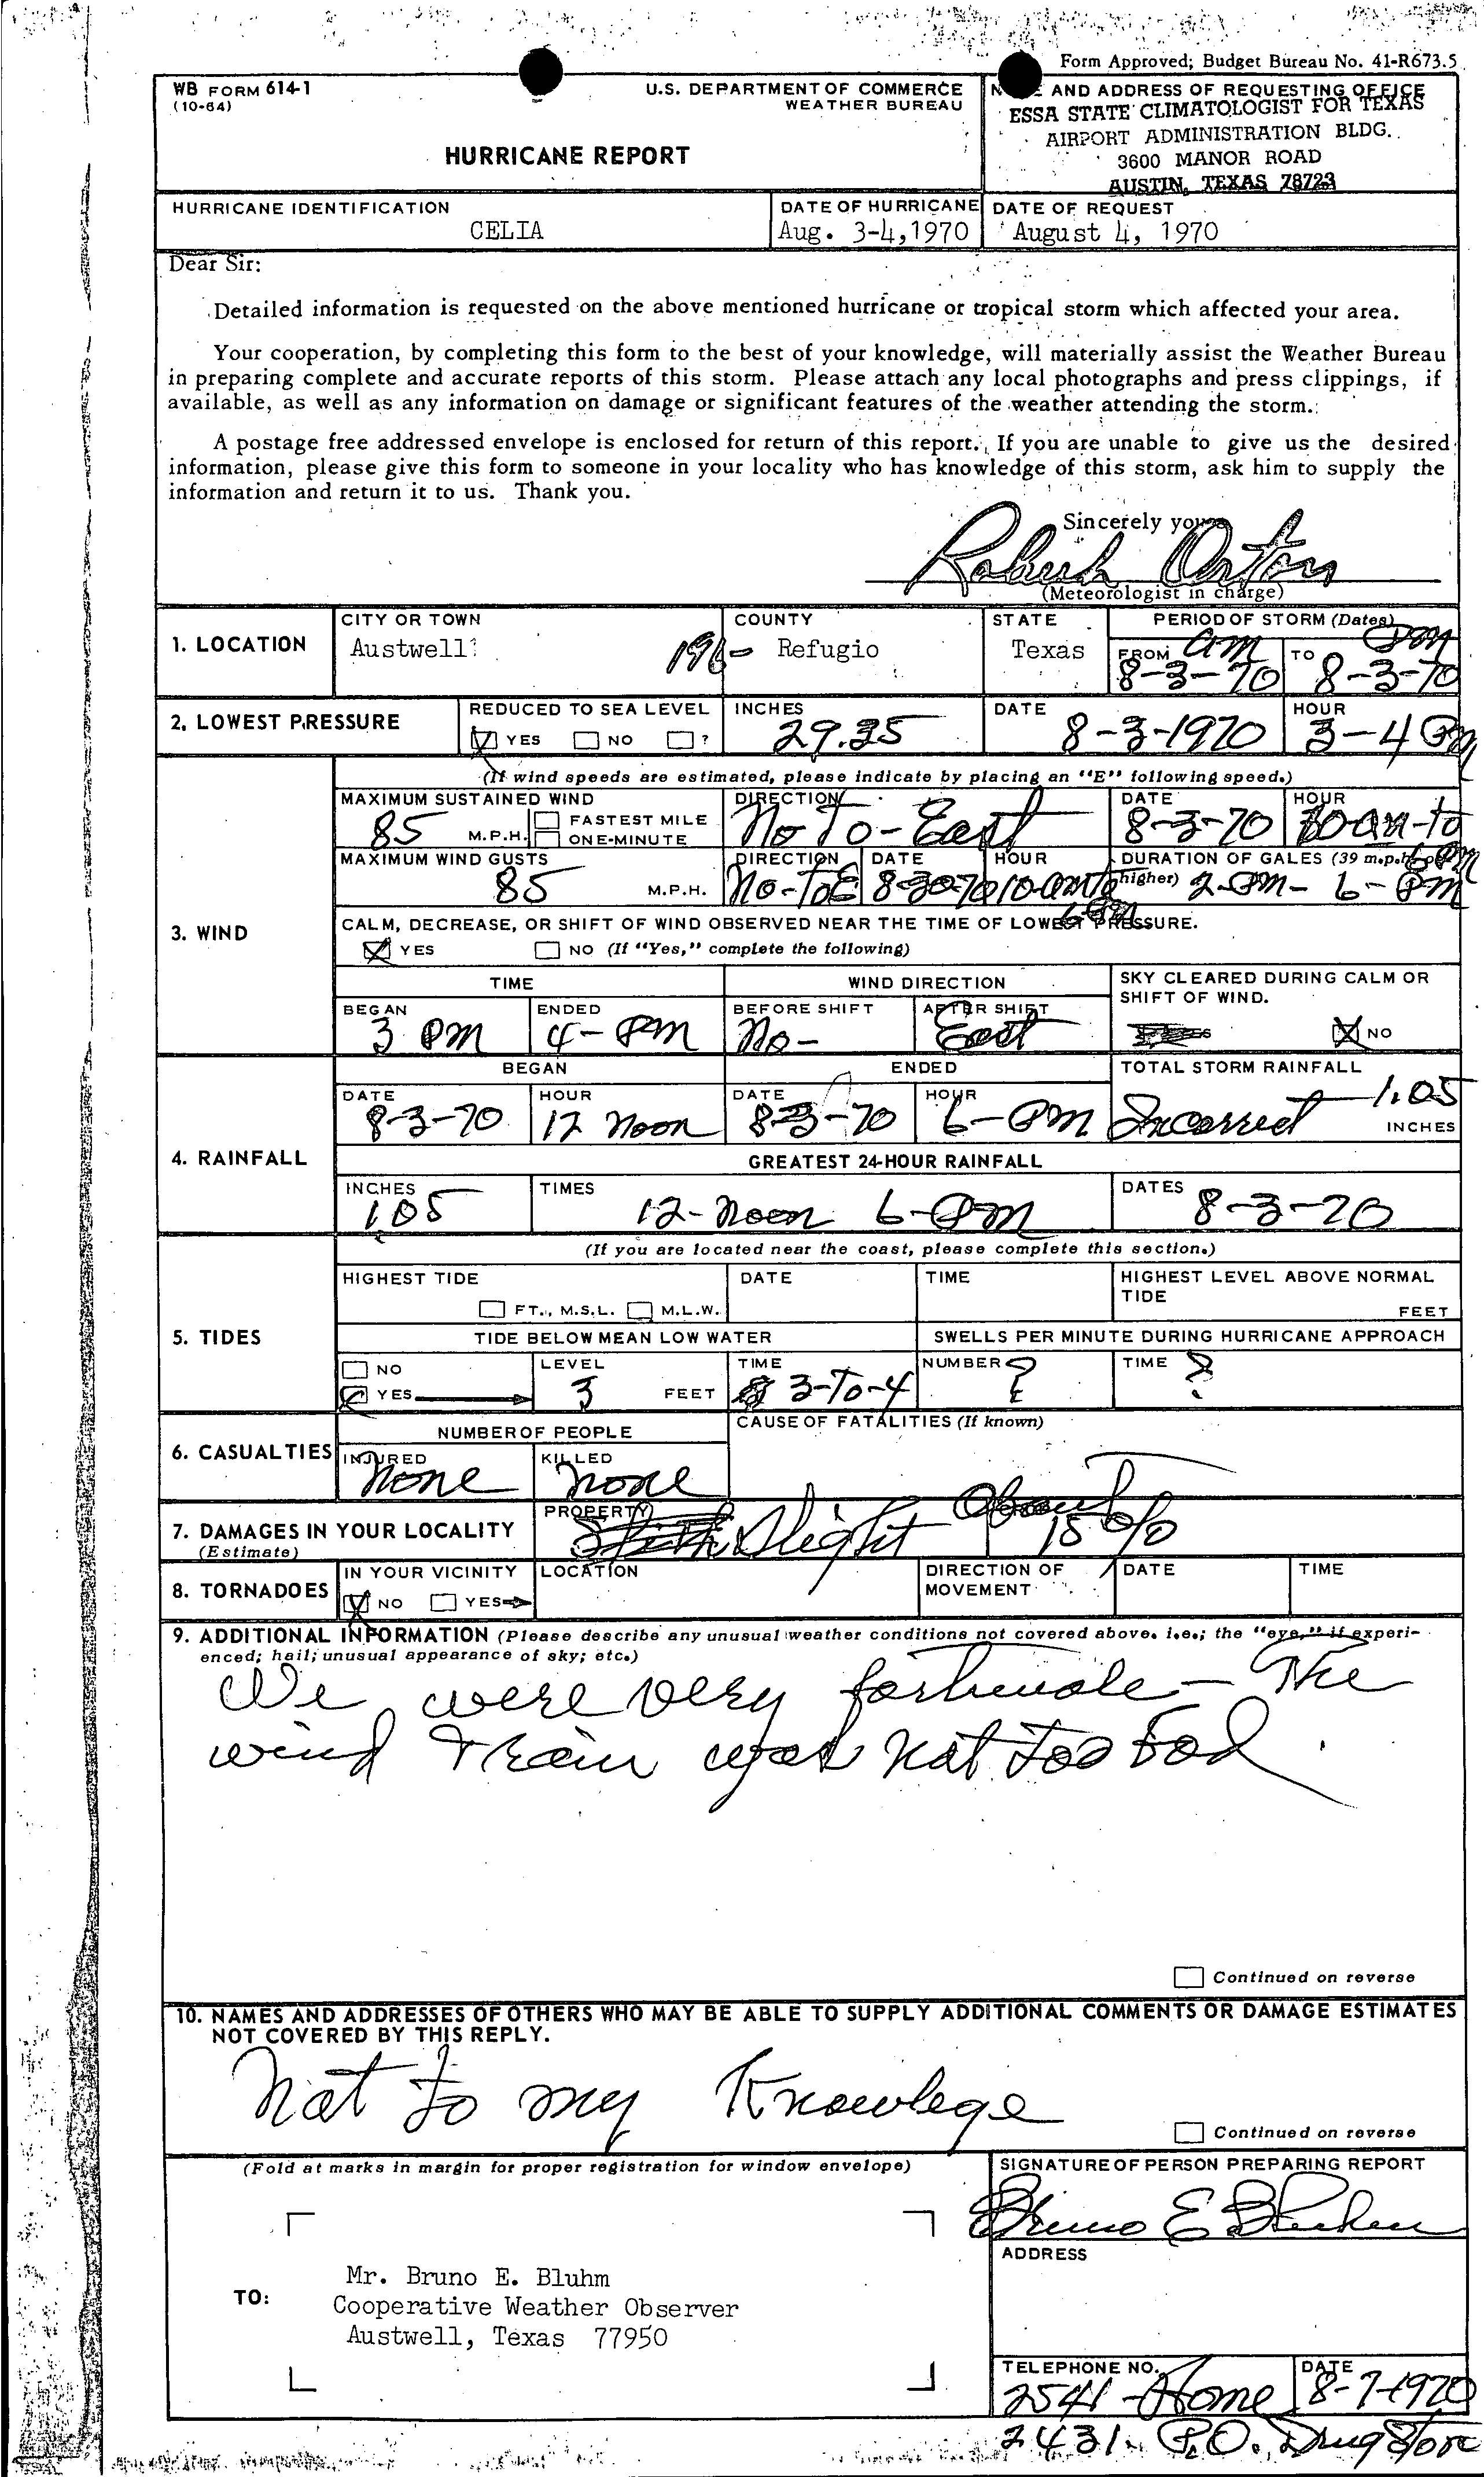 Form Approved; Budget Bureau No. 41-R673.5
WB FORM 614-1
(10-64)
U.S. DEPARTMENT OF COMMERCE
WEATHER BUREAU
HURRICANE REPORT
AND ADDRESS OF REQUESTING OFFICE
ESSA STATE CLIMATOLOGIST FOR TEXAS
AIRPORT ADMINISTRATION BLDG.
3600 MANOR ROAD
AUSTIN, TEXAS 78723
HURRICANE IDENTIFICATION
CELIA
DATE OF HURRICANE
Aug. 3-4,1970
DATE OF REQUEST
August 4, 1970
Dear Sir:
Detailed information is requested on the above mentioned hurricane or tropical storm which affected your area.
Your cooperation, by completing this form to the best of your knowledge, will materially assist the Weather Bureau
in preparing complete and accurate reports of this storm. Please attach any local photographs and press clippings, if
available, as well as any information on damage or significant features of the weather attending the storm.
A postage free addressed envelope is enclosed for return of this report. If you are unable to give us the desired
information, please give this form to someone in your locality who has knowledge of this storm, ask him to supply the
information and return it to us. Thank you.
Sincerely yours
Robert Orton
(Meteorologist in charge)
1. LOCATION
CITY OR TOWN
Austwell
COUNTY
196- Refugio
STATE
Texas
PERIOD OF STORM (Dates)
FROM am 8-3-70
TO pm 8-3-70
2. LOWEST PRESSURE
REDUCED TO SEA LEVEL
YES NO ?
INCHES
29.35
DATE
8-3-1970
HOUR
3-4 Pm
3. WIND
(If wind speeds are estimated, please indicate by placing an "E" following speed.)
MAXIMUM SUSTAINED WIND
85 M.P.H. FASTEST MILE
ONE-MINUTE
DIRECTION
No To-East
DATE
8-3-70
HOUR
10-am-to
6 Pm
MAXIMUM WIND GUSTS
85 M.P.H.
DIRECTION
No-ToE
DATE
8-3-70
HOUR
10-am To
6-Pm
DURATION OF GALES (39 m.p.h. or higher)
2-PM- 6-PM
CALM, DECREASE, OR SHIFT OF WIND OBSERVED NEAR THE TIME OF LOWEST PRESSURE.
YES NO (If "Yes," complete the following)
TIME
WIND DIRECTION
SKY CLEARED DURING CALM OR
SHIFT OF WIND.
BEGAN
3 PM
ENDED
4-PM
BEFORE SHIFT
No-
AFTER SHIFT
East
NO
4. RAINFALL
BEGAN
ENDED
TOTAL STORM RAINFALL
DATE
8-3-70
HOUR
12 Noon
DATE
8-3-70
HOUR
6-PM
Incorrect 1.05
INCHES
GREATEST 24-HOUR RAINFALL
INCHES
1.05
TIMES
12-Noon 6-PM
DATES
8-3-70
5. TIDES
(If you are located near the coast, please complete this section.)
HIGHEST TIDE
FT., M.S.L. M.L.W.
DATE
TIME
HIGHEST LEVEL ABOVE NORMAL
TIDE
FEET
TIDE BELOW MEAN LOW WATER
SWELLS PER MINUTE DURING HURRICANE APPROACH
NO
YES
LEVEL
3 FEET
TIME
3-To-4
NUMBER ?
TIME ?
6. CASUALTIES
NUMBER OF PEOPLE
INJURED
None
KILLED
None
CAUSE OF FATALITIES (If known)
7. DAMAGES IN YOUR LOCALITY
(Estimate)
PROPERTY
Slight About 15%
8. TORNADOES
IN YOUR VICINITY
NO YES
LOCATION
DIRECTION OF
MOVEMENT
DATE
TIME
9. ADDITIONAL INFORMATION (Please describe any unusual weather conditions not covered above. i.e.; the "eye," if experi-
enced; hail; unusual appearance of sky; etc.)
We were very fortunate - The
wind & rain was not too bad.
Continued on reverse
10. NAMES AND ADDRESSES OF OTHERS WHO MAY BE ABLE TO SUPPLY ADDITIONAL COMMENTS OR DAMAGE ESTIMATES
NOT COVERED BY THIS REPLY.
Not to my Knowlege
Continued on reverse
(Fold at marks in margin for proper registration for window envelope)
TO:
Mr. Bruno E. Bluhm
Cooperative Weather Observer
Austwell, Texas 77950
SIGNATURE OF PERSON PREPARING REPORT
Bruno E Bluhm
ADDRESS
TELEPHONE NO.
2541-Home
DATE
8-7-1970
2431 P.O. Drug Store